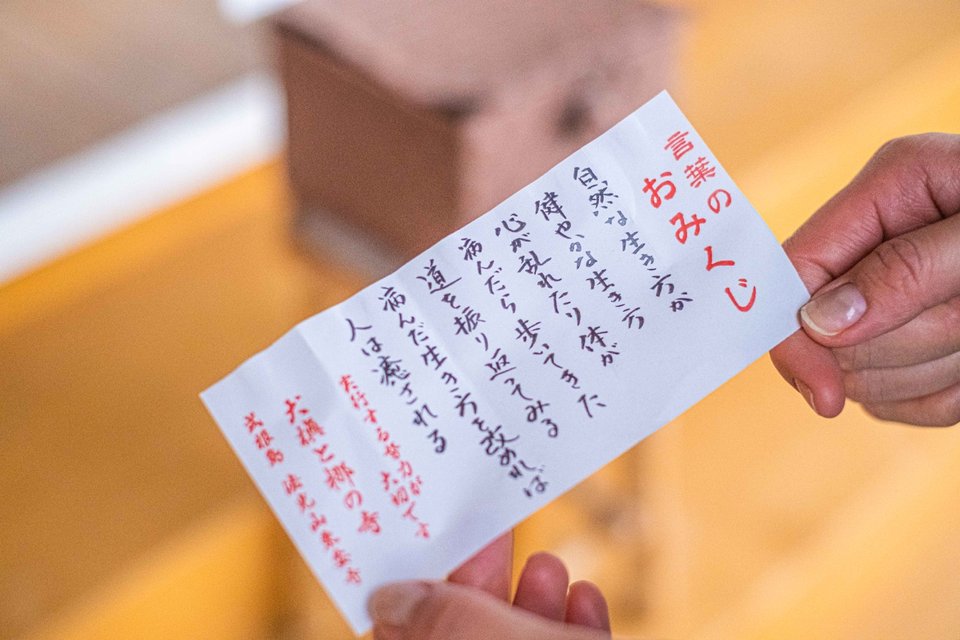 言葉の
おみくじ
自然な生き方が
健やかな生き方
心が乱れたり体が
病んだら歩いてきた
道を振り返ってみる
病んだ生き方を改めれば
人は癒される
実行する努力が
大切です
犬槙と梛の寺
式根島 法光山東要寺